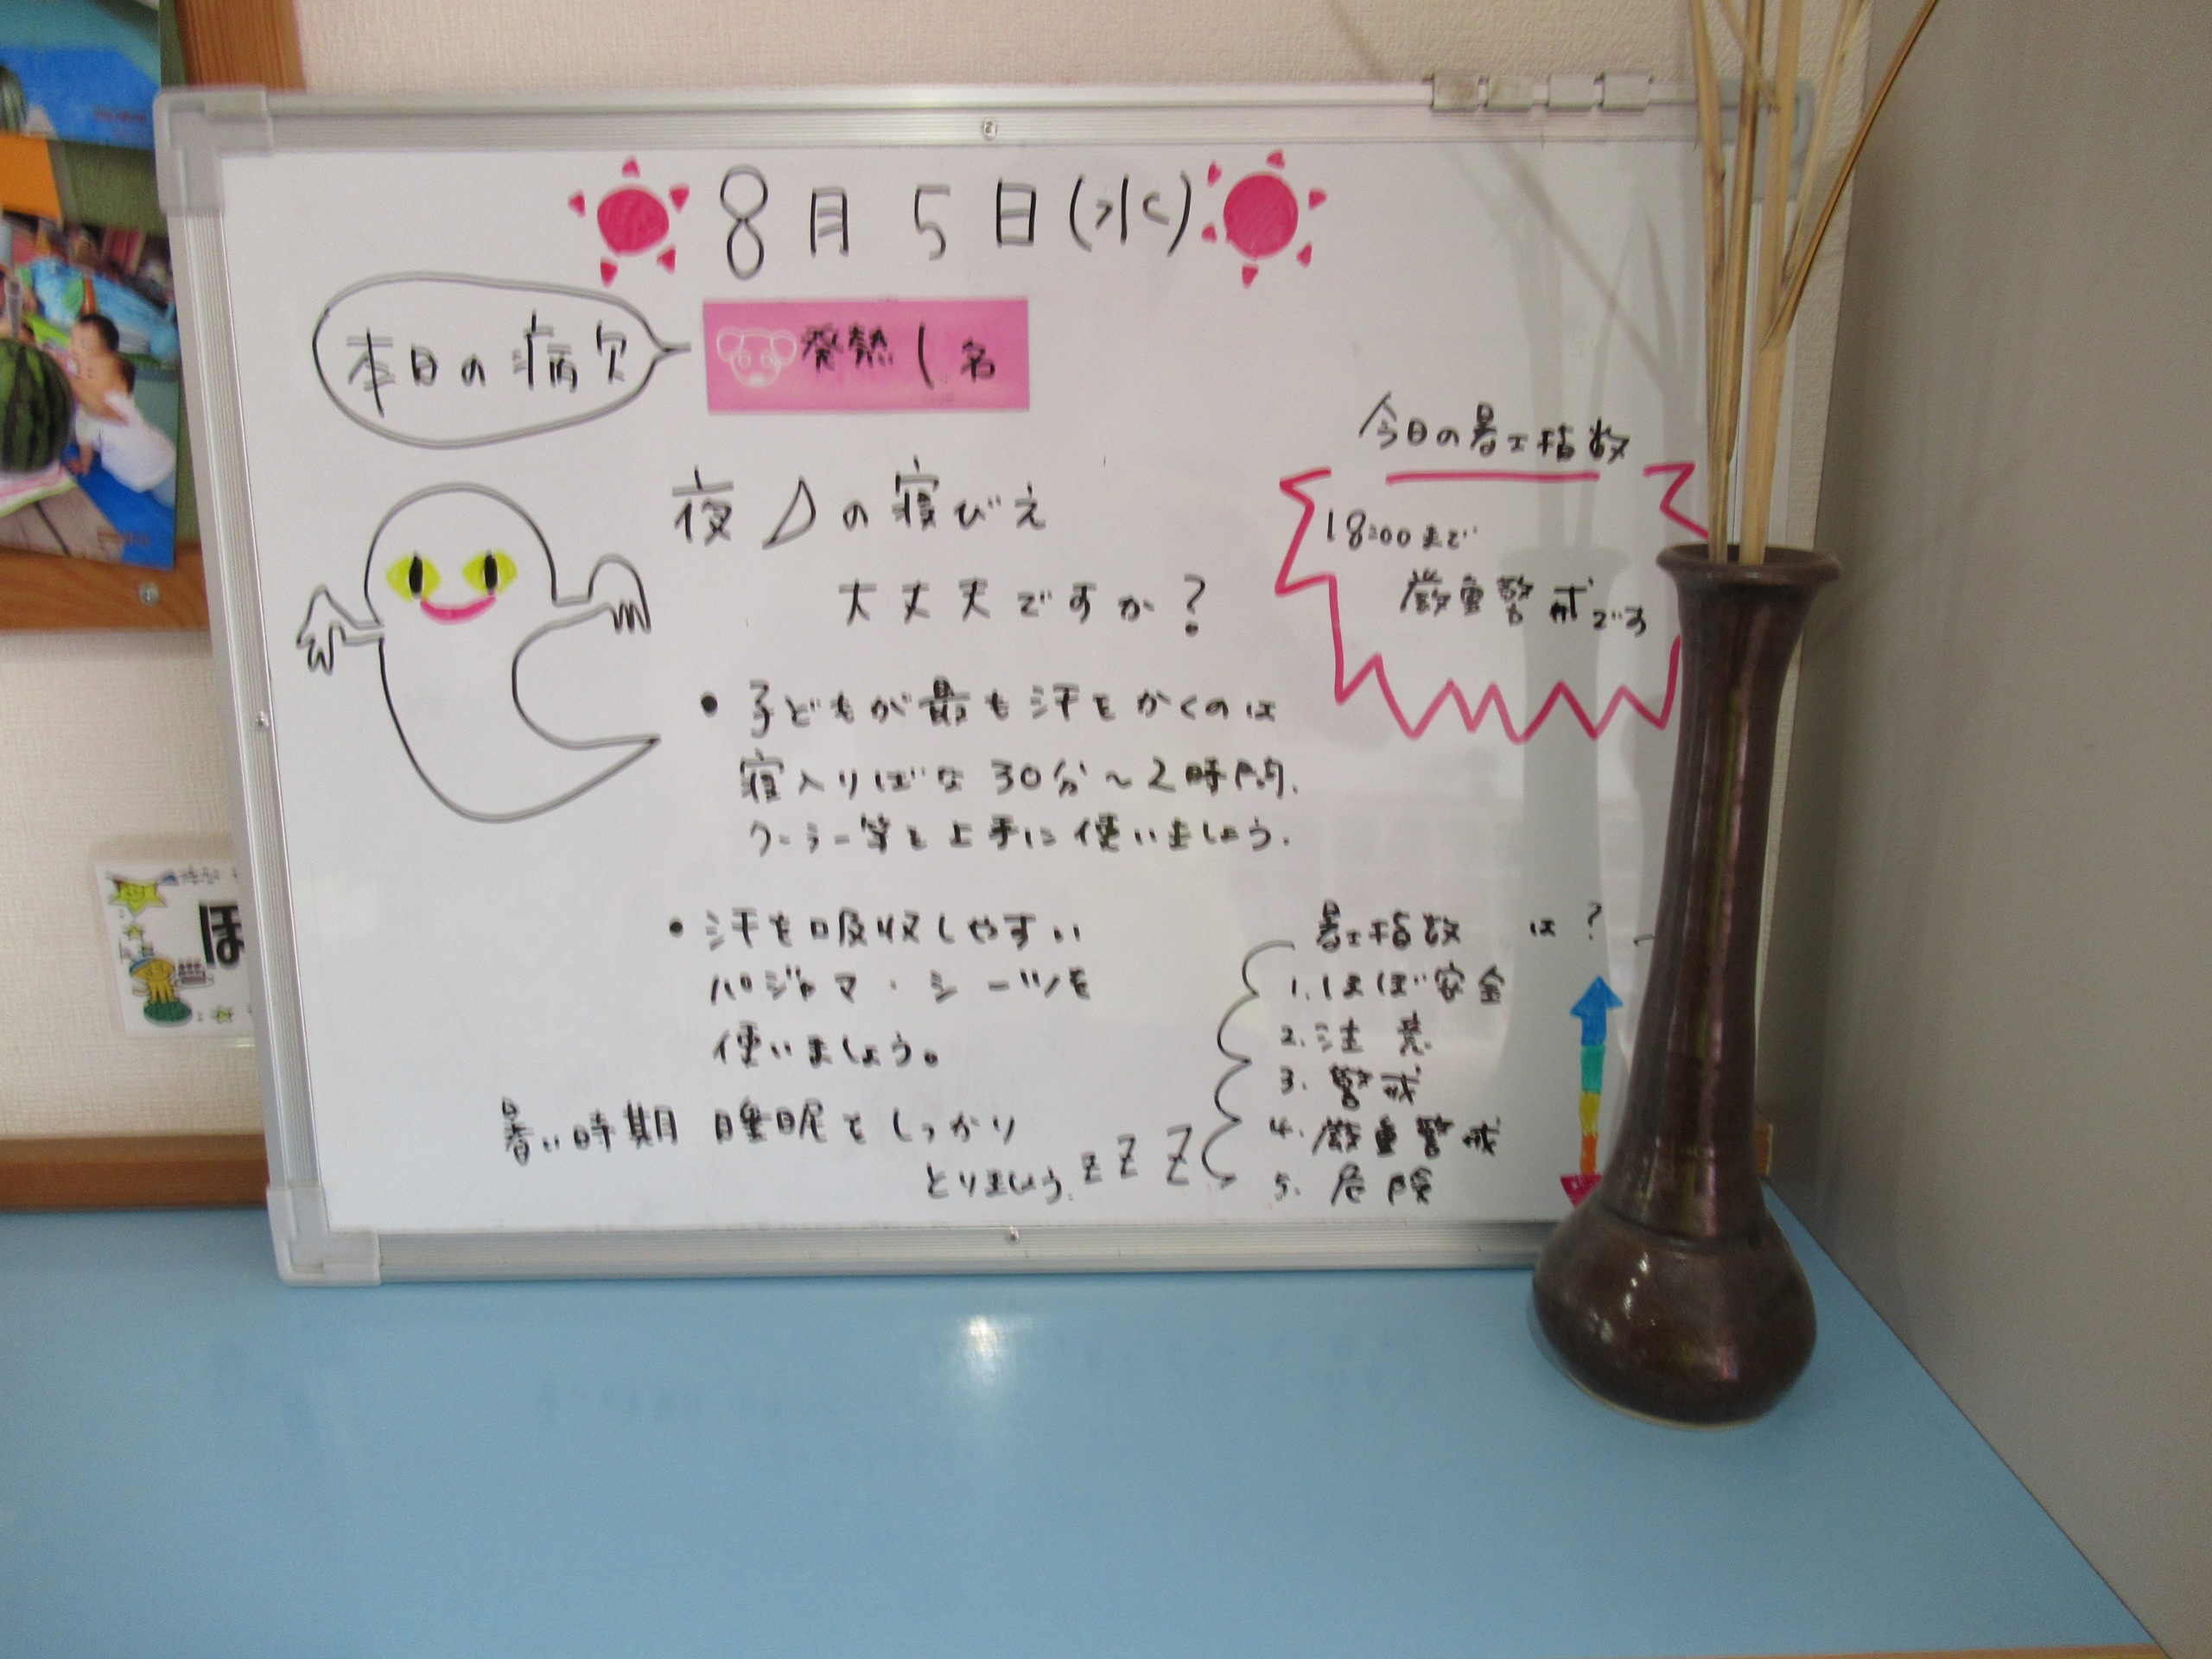 8月5日(水)
本日の病欠
発熱1名
今日の暑さ指数
18:00まで
厳重警戒です
夜の寝びえ
大丈夫ですか?
・子どもが最も汗をかくのは
寝入りばな30分～2時間.
クーラー等を上手に使いましょう.
・汗を吸収しやすい
パジャマ・シーツを
使いましょう。
暑い時期 睡眠をしっかり
とりましょう. z Z Z
暑さ指数 は?
1. ほぼ安全
2. 注意
3. 警戒
4. 厳重警戒
5. 危険
ほ